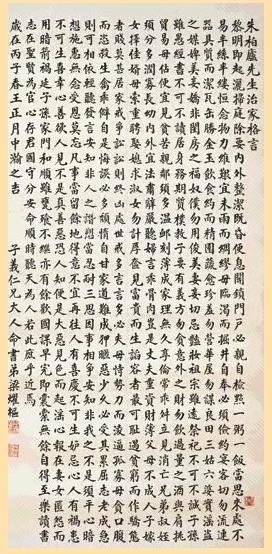 朱柏廬先生治家格言
黎明即起灑掃庭除要內外整潔既昏便息關鎖門戶必親自檢點一粥一飯當思來處不
易半絲半縷恒念物力維艱宜未雨而綢繆毋臨渴而掘井自奉必須儉約宴客切勿流連
器具質而潔瓦缶勝金玉飲食約而精園蔬愈珍羞勿營華屋勿謀良田三姑六婆實淫盜
之媒婢美妾嬌非閨房之福奴僕勿用俊美妻妾切忌豔妝祖宗雖遠祭祀不可不誠子孫
雖愚經書不可不讀居身務期質樸教子要有義方勿貪意外之財勿飲過量之酒與肩挑
貿易毋佔便宜見貧苦親鄰須多溫卹刻薄成家理無久享倫常乖舛立見消亡兄弟叔姪
須分多潤寡長幼內外宜法肅辭嚴聽婦言乖骨肉豈是丈夫重資財薄父母不成人子嫁
女擇佳婿毋索重聘娶媳求淑女勿計厚奩見富貴而生諂容者最可恥遇貧窮而作驕態
者賤莫甚居家戒爭訟訟則終凶處世戒多言言多必失毋恃勢力而凌逼孤寡毋貪口腹
而恣殺生禽乖僻自是悔誤必多頹惰自甘家道難成狎暱惡少久必受其累屈志老成急
則可相依輕聽發言安知非人之譖愬當忍耐三思因事相爭安知非我之不是須平心暗
想施惠無念受恩莫忘凡事當留餘地得意不宜再往人有喜慶不可生妒忌心人有禍患
不可生喜幸心善欲人見不是真善惡恐人知便是大惡見色而起淫心報在妻女匿怨而
用暗箭禍延子孫家門和順雖饔飧不繼亦有餘歡國課早完即囊橐無餘自得至樂讀書
志在聖賢為官心存君國守分安命順時聽天為人若此庶乎近焉
歲在丙子春王正月中瀚之吉 子義仁兄大人命書弟梁耀樞